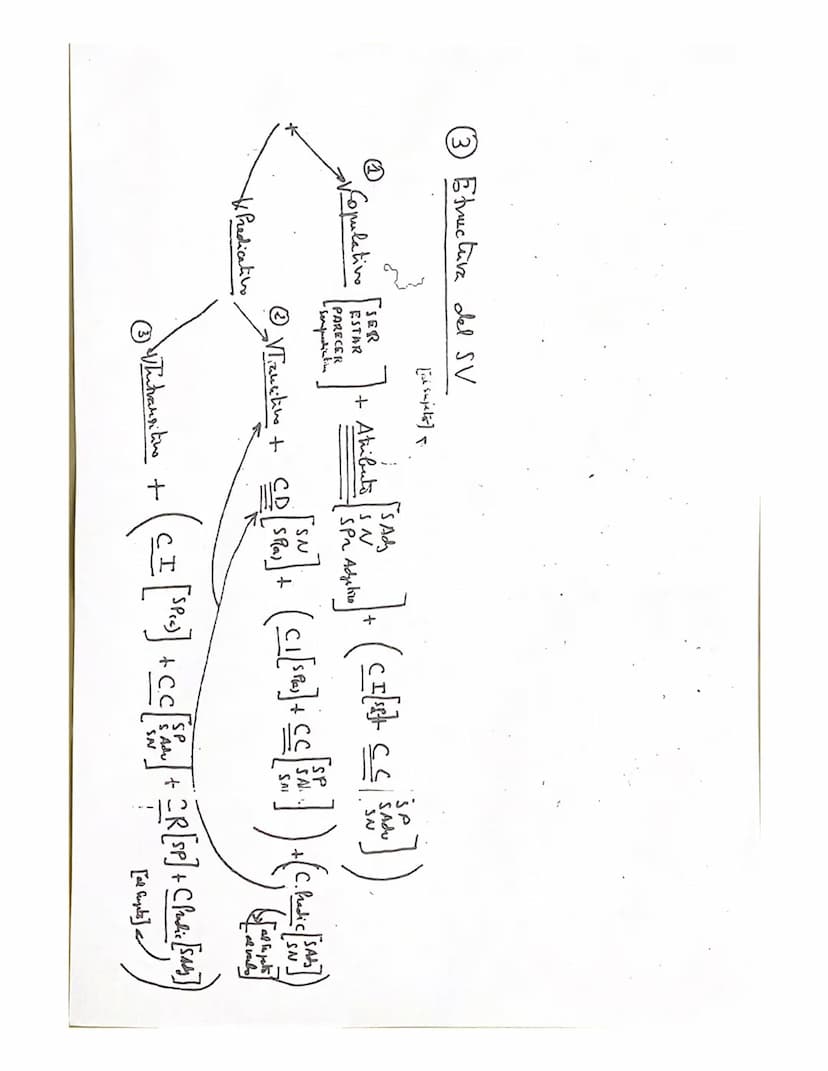 ③ Estructura del SV
[al sujeto]
① V Copulativo [SER ESTAR PARECER semipredicativo] + Atributo [SAdj SN SPr Adjetivo] + (CI [SP] + CC [SP SAdv SN])
+
V Predicativo
② V Transitivo + CD [SN SP(a)] + (CI [SP(a)] + CC [SP SAdv SN]) + (C. Predic [SAdj SN])
[al Sujeto]
③ V Intransitivo + (CI [SP(a)] + CC [SP SAdv SN] + CR [SP] + C Predic [SAdj])
[al Sujeto]